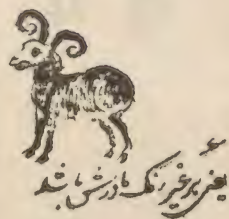 یعنی بر غیر رنگ مادرش باشد